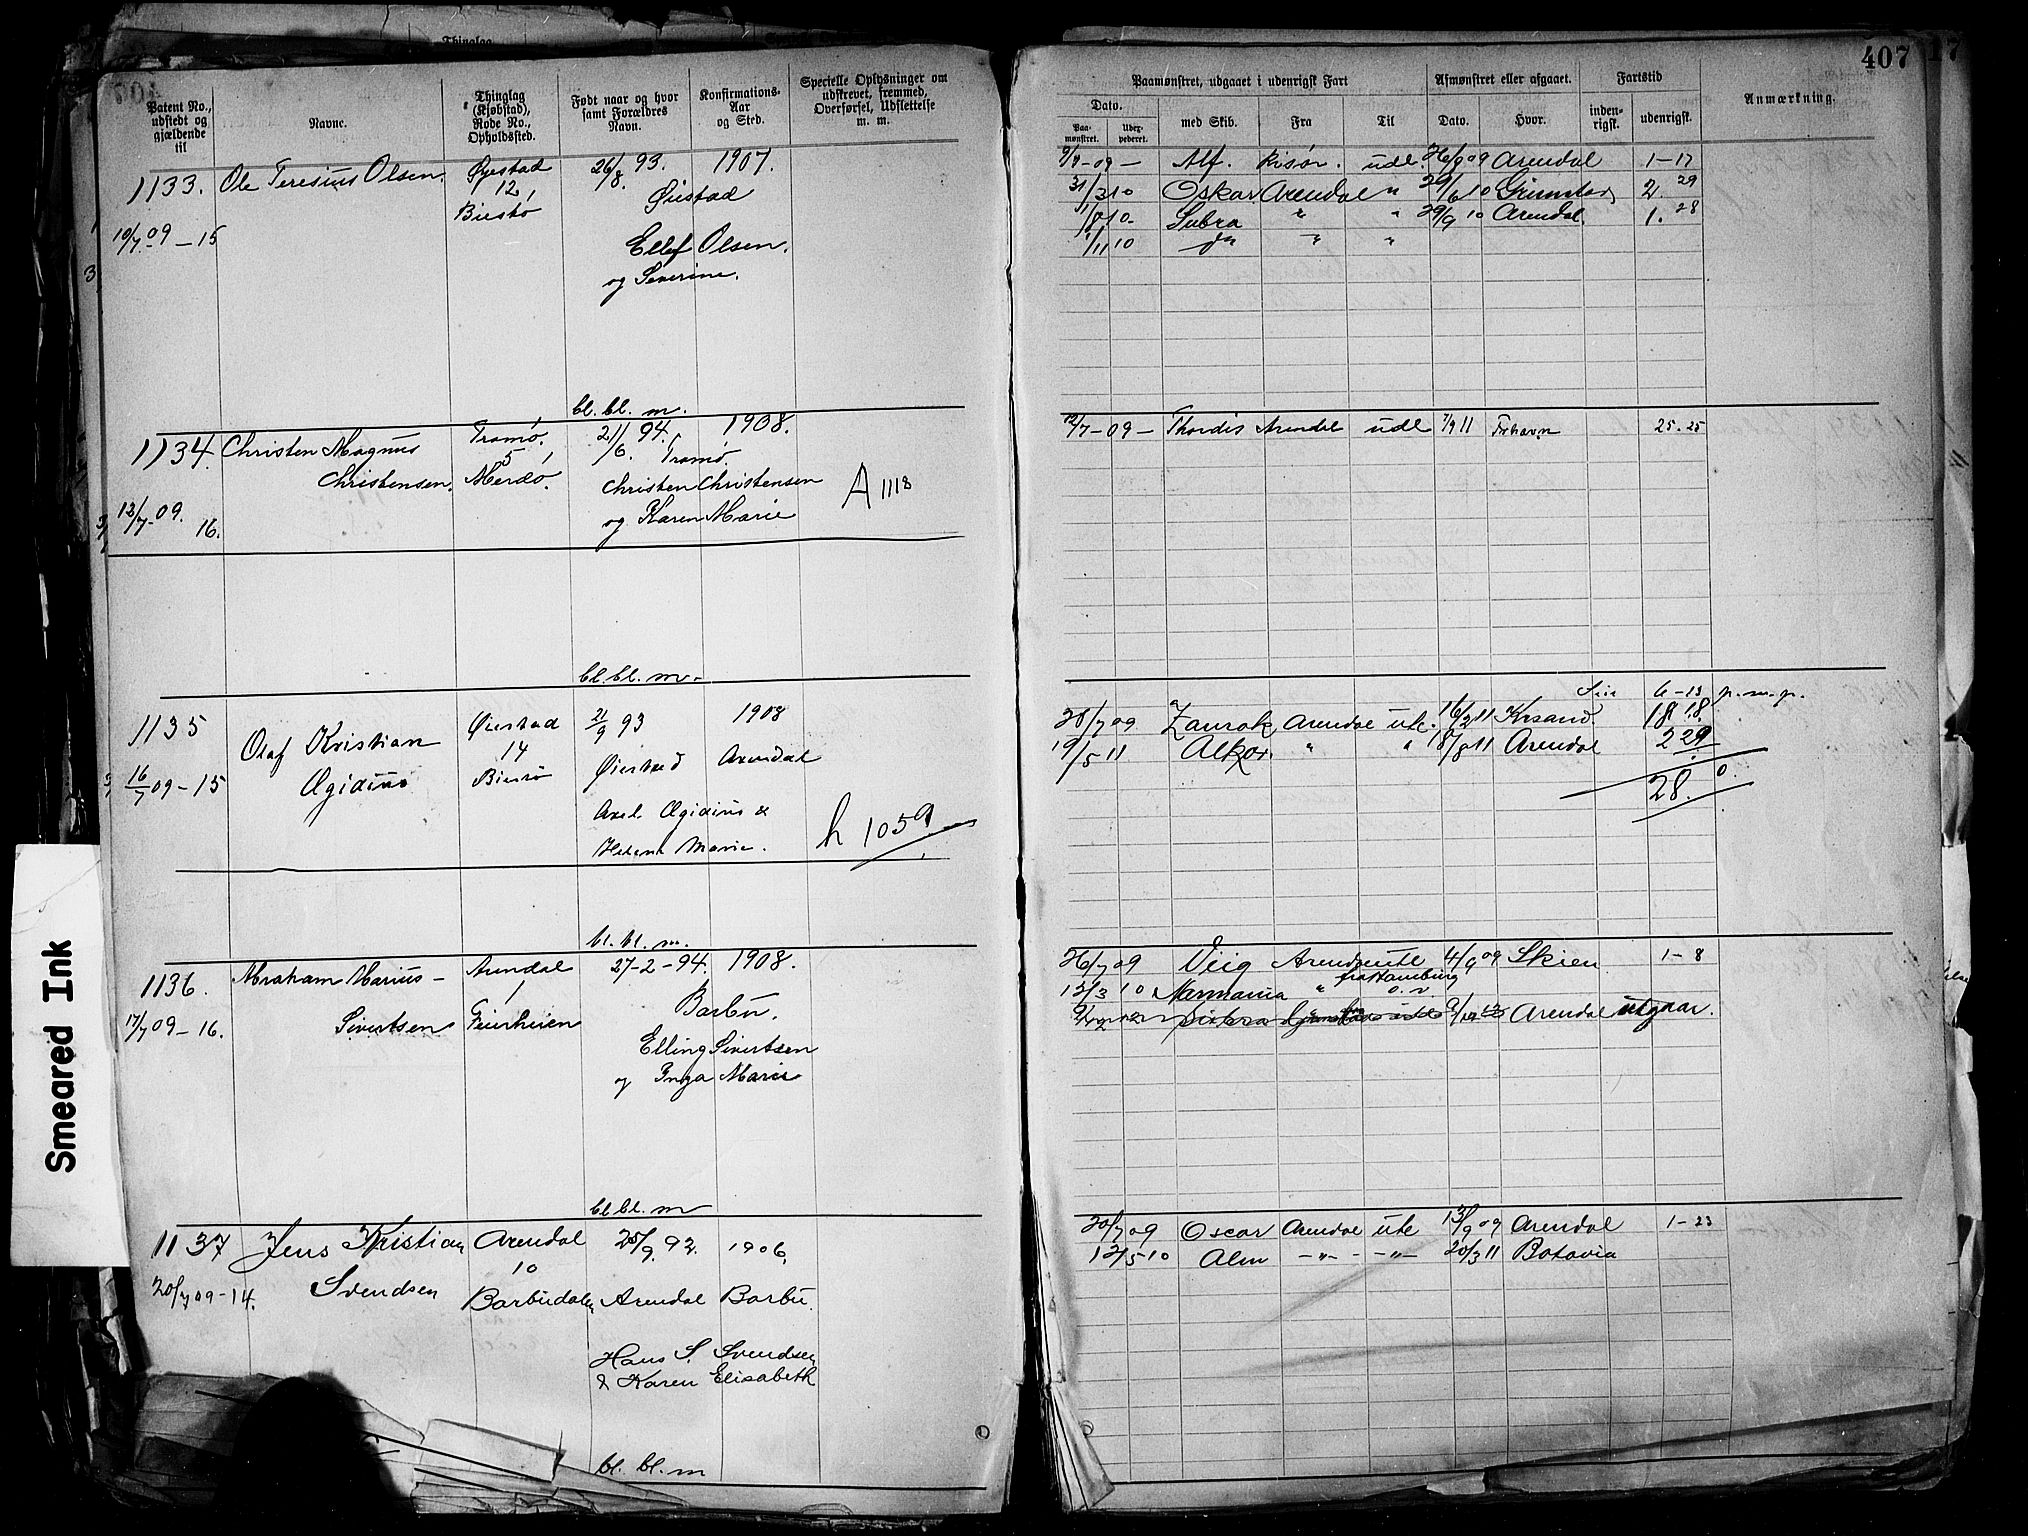 Patent No., udstedt og gjældende til
Navne.
Thinglag (Kjøbstad), Rode No., Opholdssted.
Født naar og hvor samt Forældres Navn.
Konfirmations-Aar og Sted.
Specielle Oplysninger om udskrevet, fremmed, Overførsel, Udslettelse m. m.
1133. Ole Teresius Olsen. Øyestad 26/8. 93. 1907.
12 Øiestad
Biestø
10/7.09 – 15
Ellef Olsen.
og Severine.
bl. bl. m.
1134. Christen Magnus Tromø. 21/6. 94. 1908.
5 Tromø.
Christensen. Merdø. Christen Christensen A 1118
12/7-09. 16. og Karen Marie
bl. bl. m.
1135 Olaf Kristian Øiestad 21/9 93 1908
14
16/7 09 – 15 Ægidius Biesø Øiestad Arendal
Axel Ægidius &
Helene Marie. h 1059
bl. bl. m.
1136. Abraham Marius – Arendal 27-2-94. 1908.
1 Barbu.
17/7 09 – 16. Sivertsen Feierheien
Elling Sivertsen
og Inga Marie
bl. bl. m
1137 Jens Kristian Arendal 25/9. 92. 1906.
10
20/7 09 – 14. Svendsen Barbudalen Arendal Barbu.
Hans S. Svendsen
& Karen Elisabeth
bl. bl. m
Smeared Ink
407
Paamønstret, udgaaet i udenrigsk Fart
Afmønstret eller afgaaet.
Fartstid
Anmærkning.
Dato.
Paa-mønstret.
med Skib.
Fra
Til
Dato.
Hvor.
inden-rigsk.
udenrigsk.
9/7-09 – Alf. Risør. udl. 26/8 09 Arendal 1-17
31/3 10 Oskar Arendal " 29/6 10 Grimstad 2. 29
1/8 10 – Subra " " 29/9 10 Arendal 1. 28
1/11 10 do " "
12/7-09 – Thordis Arendal udl 7/9 11 Frhavn 25-25
6-13 p.m.p.
28/7 09 Arendal ute. 16/2 11 Krsand 18 18
19/5 11 Alkor. " " 18/8 11 Arendal 2 29
28. 0
26/7 09 Viig Arendal ute 4/9 09 Skien 1-8
fra Hamburg
12/3 10 Normania " o. v
Arendal utgaar.
20/7 09 Oscar Arendal ute 13/9 09 Arendal 1-23
12/5 10 Alm –"– –"– 20/3 11 Batavia